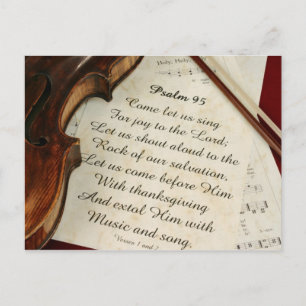 Holy, Holy, Holy
Psalm 95
Come let us sing
For joy to the Lord;
Let us shout aloud to the
Rock of our salvation.
Let us come before Him
With thanksgiving
And extol Him with
Music and song.
Verses 1 and 2